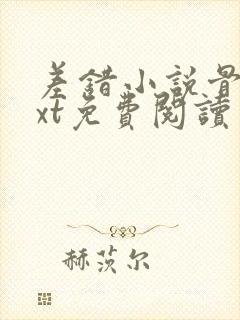 差錯小説
xt免費閱讀
赫茨尔